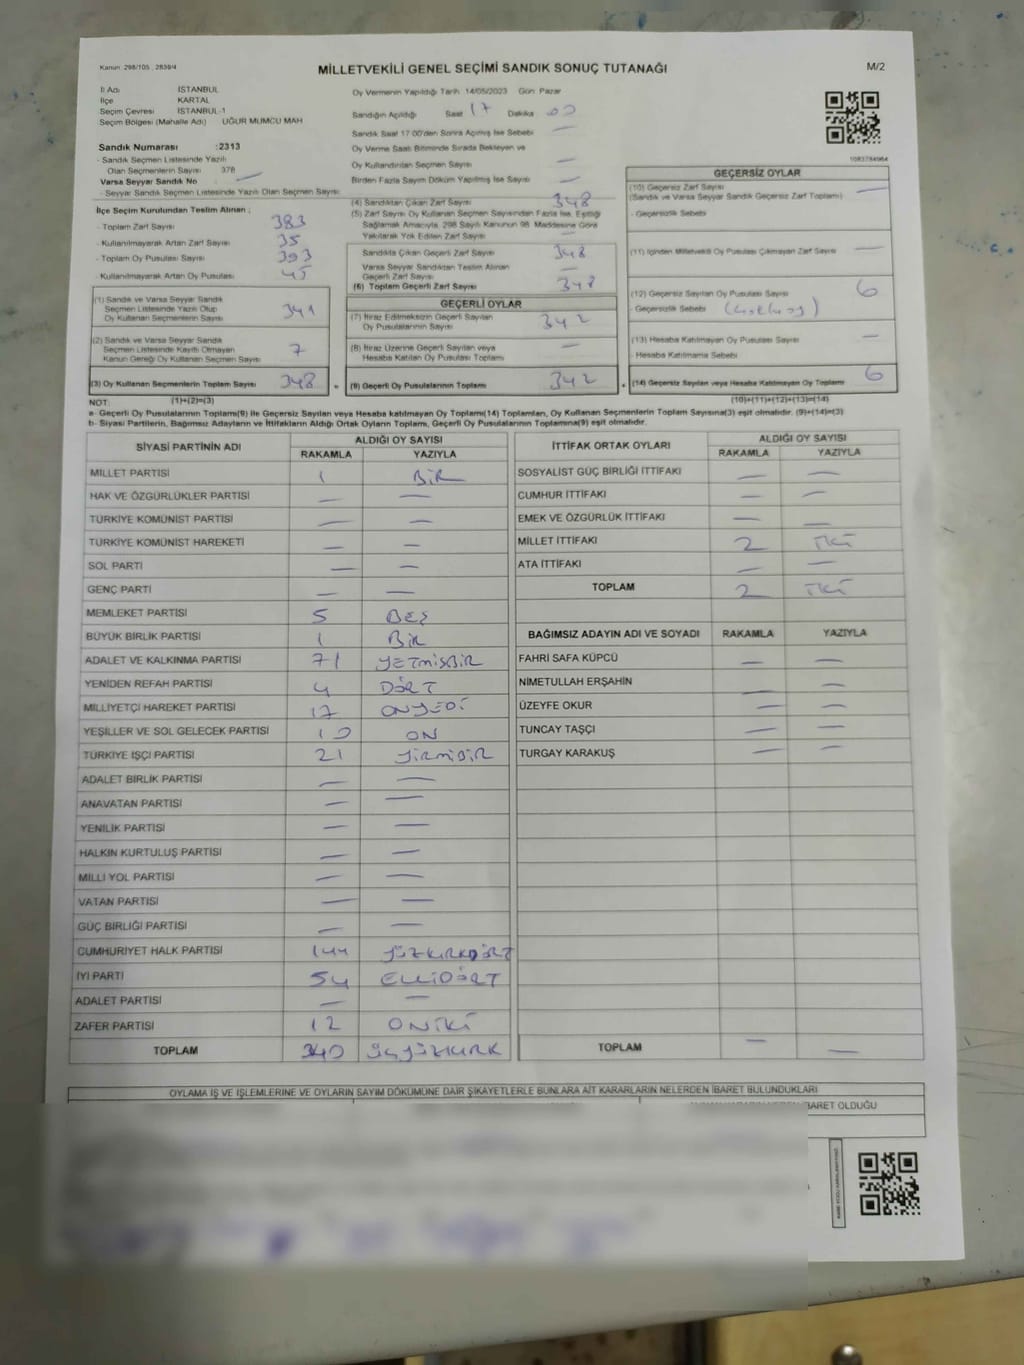 Kanun: 298/105 , 2839/4
MİLLETVEKİLİ GENEL SEÇİMİ SANDIK SONUÇ TUTANAĞI
M/2
İl Adı İSTANBUL
İlçe KARTAL
Seçim Çevresi İSTANBUL-1
Seçim Bölgesi (Mahalle Adı) UĞUR MUMCU MAH
Sandık Numarası :2313
- Sandık Seçmen Listesinde Yazılı
Olan Seçmenlerin Sayısı 378
Varsa Seyyar Sandık No —
- Seyyar Sandık Seçmen Listesinde Yazılı Olan Seçmen Sayısı
İlçe Seçim Kurulundan Teslim Alınan ;
- Toplam Zarf Sayısı 383
- Kullanılmayarak Artan Zarf Sayısı 35
- Toplam Oy Pusulası Sayısı 393
- Kullanılmayarak Artan Oy Pusulası 45
(1) Sandık ve Varsa Seyyar Sandık
Seçmen Listesinde Yazılı Olup
Oy Kullanan Seçmenlerin Sayısı 341
(2) Sandık ve Varsa Seyyar Sandık
Seçmen Listesinde Kayıtlı Olmayan
Kanun Gereği Oy Kullanan Seçmen Sayısı 7
(3) Oy Kullanan Seçmenlerin Toplam Sayısı 348
Oy Vermenin Yapıldığı Tarih 14/05/2023 Gün Pazar
Sandığın Açıldığı Saat 17 Dakika 00
Sandık Saat 17.00'den Sonra Açılmış İse Sebebi —
Oy Verme Saati Bitiminde Sırada Bekleyen ve
Oy Kullandırılan Seçmen Sayısı —
Birden Fazla Sayım Döküm Yapılmış İse Sayısı —
(4) Sandıktan Çıkan Zarf Sayısı 348
(5) Zarf Sayısı Oy Kullanan Seçmen Sayısından Fazla İse, Eşitliği
Sağlamak Amacıyla, 298 Sayılı Kanunun 98. Maddesine Göre
Yakılarak Yok Edilen Zarf Sayısı —
Sandıkta Çıkan Geçerli Zarf Sayısı 348
Varsa Seyyar Sandıktan Teslim Alınan
Geçerli Zarf Sayısı —
(6) Toplam Geçerli Zarf Sayısı 348
GEÇERLİ OYLAR
(7) İtiraz Edilmeksizin Geçerli Sayılan
Oy Pusulalarının Sayısı 342
(8) İtiraz Üzerine Geçerli Sayılan veya
Hesaba Katılan Oy Pusulası Toplamı —
(9) Geçerli Oy Pusulalarının Toplamı 342
1083784964
GEÇERSİZ OYLAR
(10) Geçersiz Zarf Sayısı —
(Sandık ve Varsa Seyyar Sandık Geçersiz Zarf Toplamı)
- Geçersizlik Sebebi
(11) İçinden Milletvekili Oy Pusulası Çıkmayan Zarf Sayısı —
(12) Geçersiz Sayılan Oy Pusulası Sayısı 6
- Geçersizlik Sebebi
(13) Hesaba Katılmayan Oy Pusulası Sayısı —
- Hesaba Katılmama Sebebi
(14) Geçersiz Sayılan veya Hesaba Katılmayan Oy Toplamı 6
NOT: (1)+(2)=(3) (10)+(11)+(12)+(13)=(14)
a- Geçerli Oy Pusulalarının Toplamı(9) ile Geçersiz Sayılan veya Hesaba katılmayan Oy Toplamı(14) Toplamları, Oy Kullanan Seçmenlerin Toplam Sayısına(3) eşit olmalıdır. (9)+(14)=(3)
b- Siyasi Partilerin, Bağımsız Adayların ve İttifakların Aldığı Ortak Oyların Toplamı, Geçerli Oy Pusulalarının Toplamına(9) eşit olmalıdır.
SİYASİ PARTİNİN ADI ALDIĞI OY SAYISI
RAKAMLA YAZIYLA
MİLLET PARTİSİ 1 BİR
HAK VE ÖZGÜRLÜKLER PARTİSİ — —
TÜRKİYE KOMÜNİST PARTİSİ — —
TÜRKİYE KOMÜNİST HAREKETİ — —
SOL PARTİ — —
GENÇ PARTİ — —
MEMLEKET PARTİSİ 5 BEŞ
BÜYÜK BİRLİK PARTİSİ 1 BİR
ADALET VE KALKINMA PARTİSİ 71 YETMİŞBİR
YENİDEN REFAH PARTİSİ 4 DÖRT
MİLLİYETÇİ HAREKET PARTİSİ 17 ONYEDİ
YEŞİLLER VE SOL GELECEK PARTİSİ 10 ON
TÜRKİYE İŞÇİ PARTİSİ 21 YİRMİBİR
ADALET BİRLİK PARTİSİ — —
ANAVATAN PARTİSİ — —
YENİLİK PARTİSİ — —
HALKIN KURTULUŞ PARTİSİ — —
MİLLİ YOL PARTİSİ — —
VATAN PARTİSİ — —
GÜÇ BİRLİĞİ PARTİSİ — —
CUMHURİYET HALK PARTİSİ 144 YÜZKIRKDÖRT
İYİ PARTİ 54 ELLİDÖRT
ADALET PARTİSİ — —
ZAFER PARTİSİ 12 ONİKİ
TOPLAM 340 ÜÇYÜZKIRK
İTTİFAK ORTAK OYLARI ALDIĞI OY SAYISI
RAKAMLA YAZIYLA
SOSYALİST GÜÇ BİRLİĞİ İTTİFAKI — —
CUMHUR İTTİFAKI — —
EMEK VE ÖZGÜRLÜK İTTİFAKI — —
MİLLET İTTİFAKI 2 İKİ
ATA İTTİFAKI — —
TOPLAM 2 İKİ
BAĞIMSIZ ADAYIN ADI VE SOYADI RAKAMLA YAZIYLA
FAHRİ SAFA KÜPCÜ — —
NİMETULLAH ERŞAHİN — —
ÜZEYFE OKUR — —
TUNCAY TAŞÇI — —
TURGAY KARAKUŞ — —
TOPLAM — —
OYLAMA İŞ VE İŞLEMLERİNE VE OYLARIN SAYIM DÖKÜMÜNE DAİR ŞİKAYETLERLE BUNLARA AİT KARARLARIN NELERDEN İBARET BULUNDUKLARI
BARET OLDUĞU